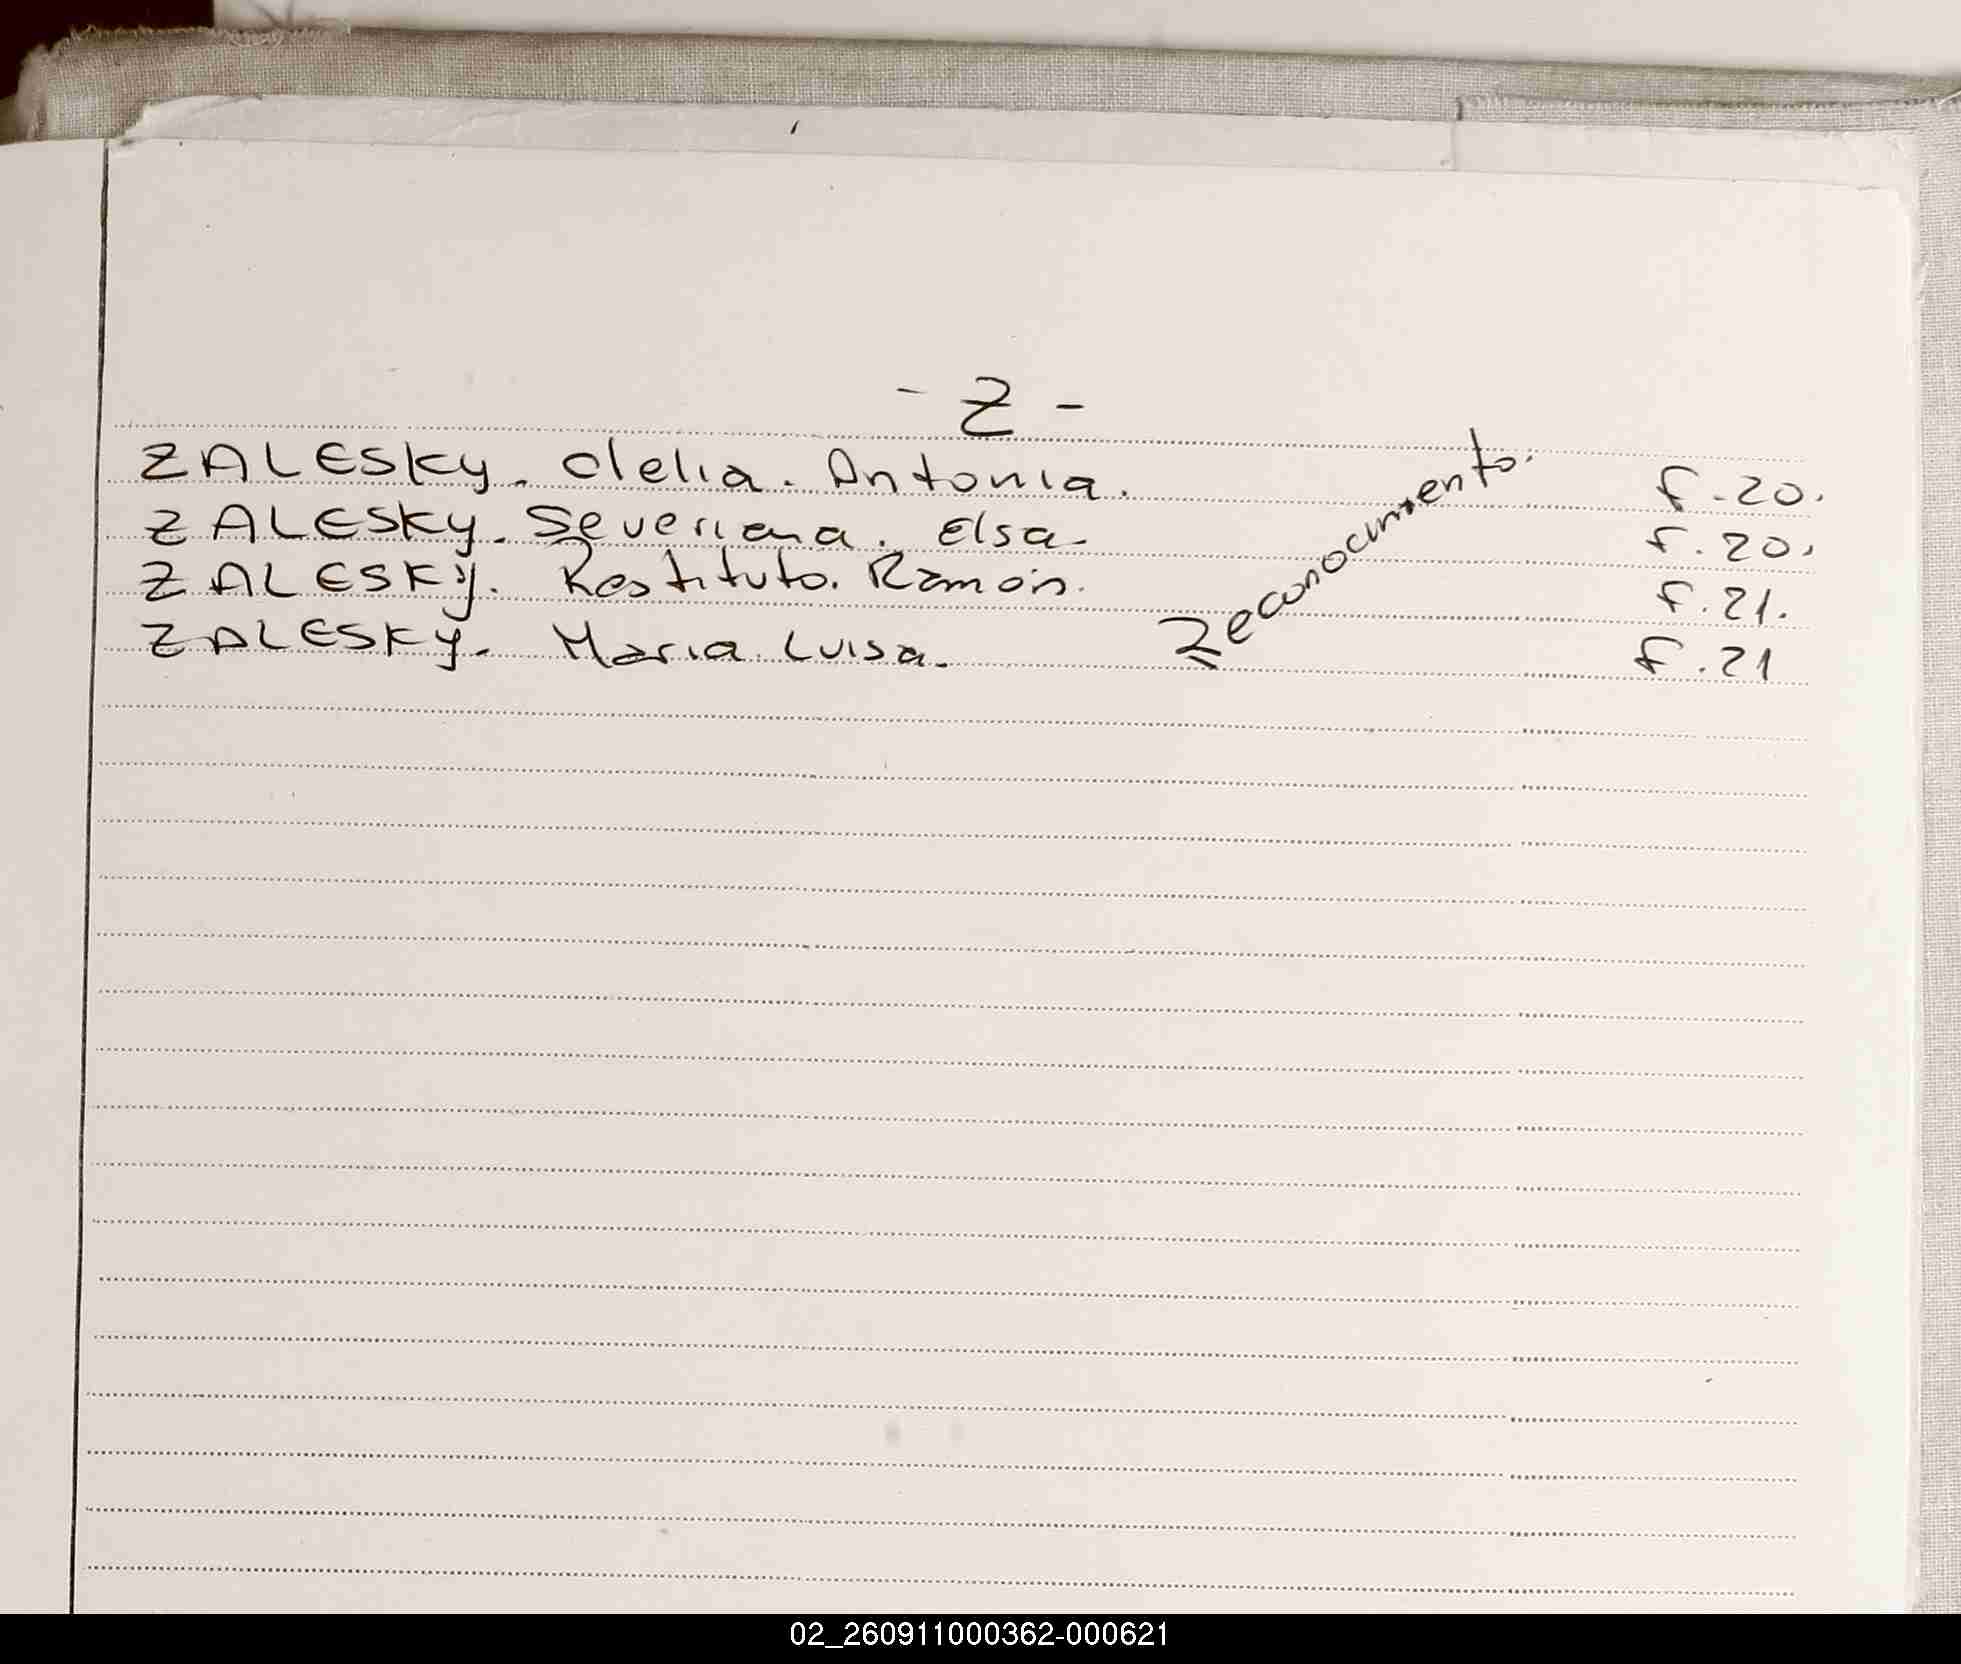 - Z -
ZALESKY. Clelia. Antonia. f.20.
ZALESKY. Severiana. Elsa. f.20.
ZALESKY. Restituto. Ramón. f.21.
ZALESKY. Maria Luisa. f.21
Reconocimiento.
02_260911000362-000621